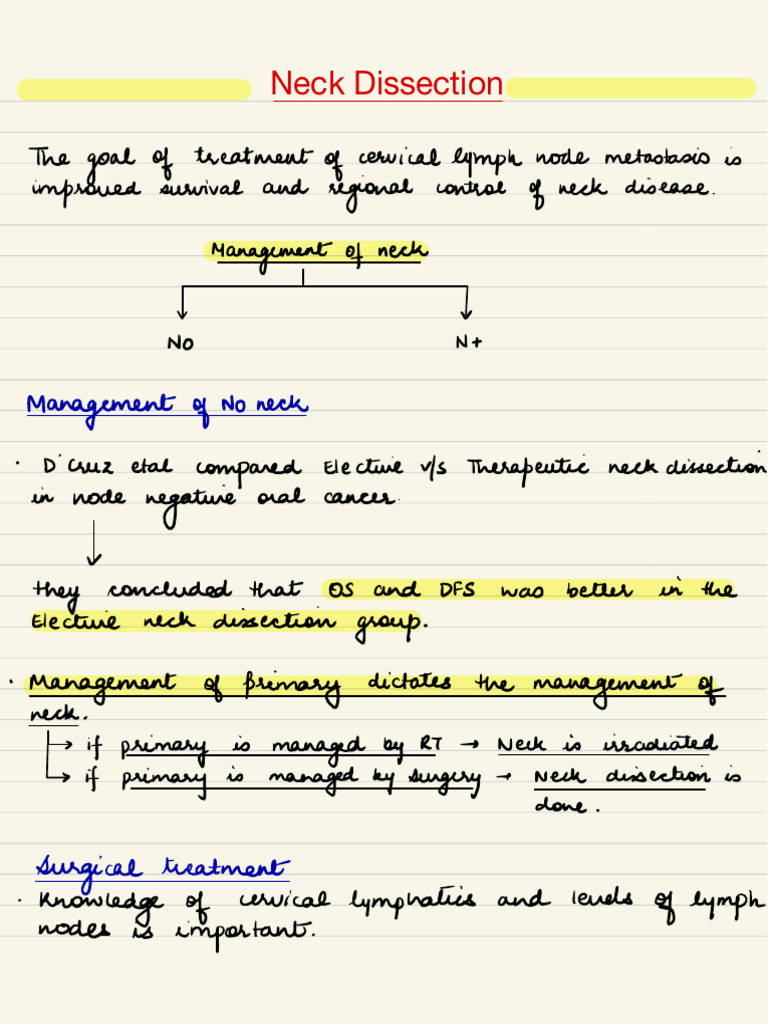 Neck Dissection
The goal of treatment of cervical lymph node metastasis is
improved survival and regional control of neck disease.
Management of neck
No
N+
Management of No neck
• D'Cruz etal compared Elective v/s Therapeutic neck dissection
in node negative oral cancer.
they concluded that OS and DFS was better in the
Elective neck dissection group.
• Management of primary dictates the management of
neck.
→ if primary is managed by RT → Neck is irradiated
→ if primary is managed by surgery → Neck dissection is
done.
Surgical treatment
• Knowledge of cervical lymphatics and levels of lymph
nodes is important.